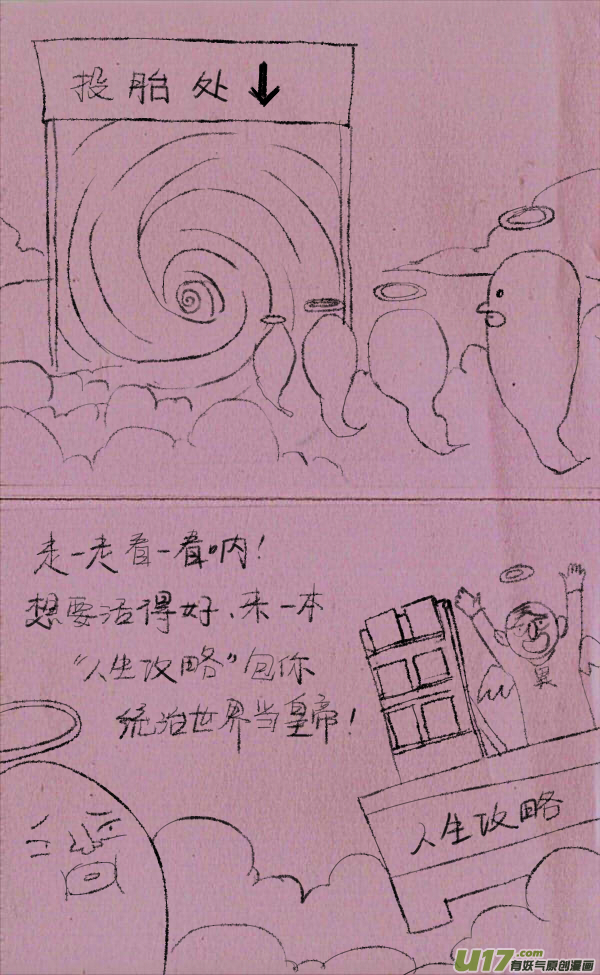 投胎处↓
走一走看一看呐!
想要活得好、来一本
"人生攻略"包你
统治世界当皇帝!
人生攻略
U17.com
有妖气原创漫画